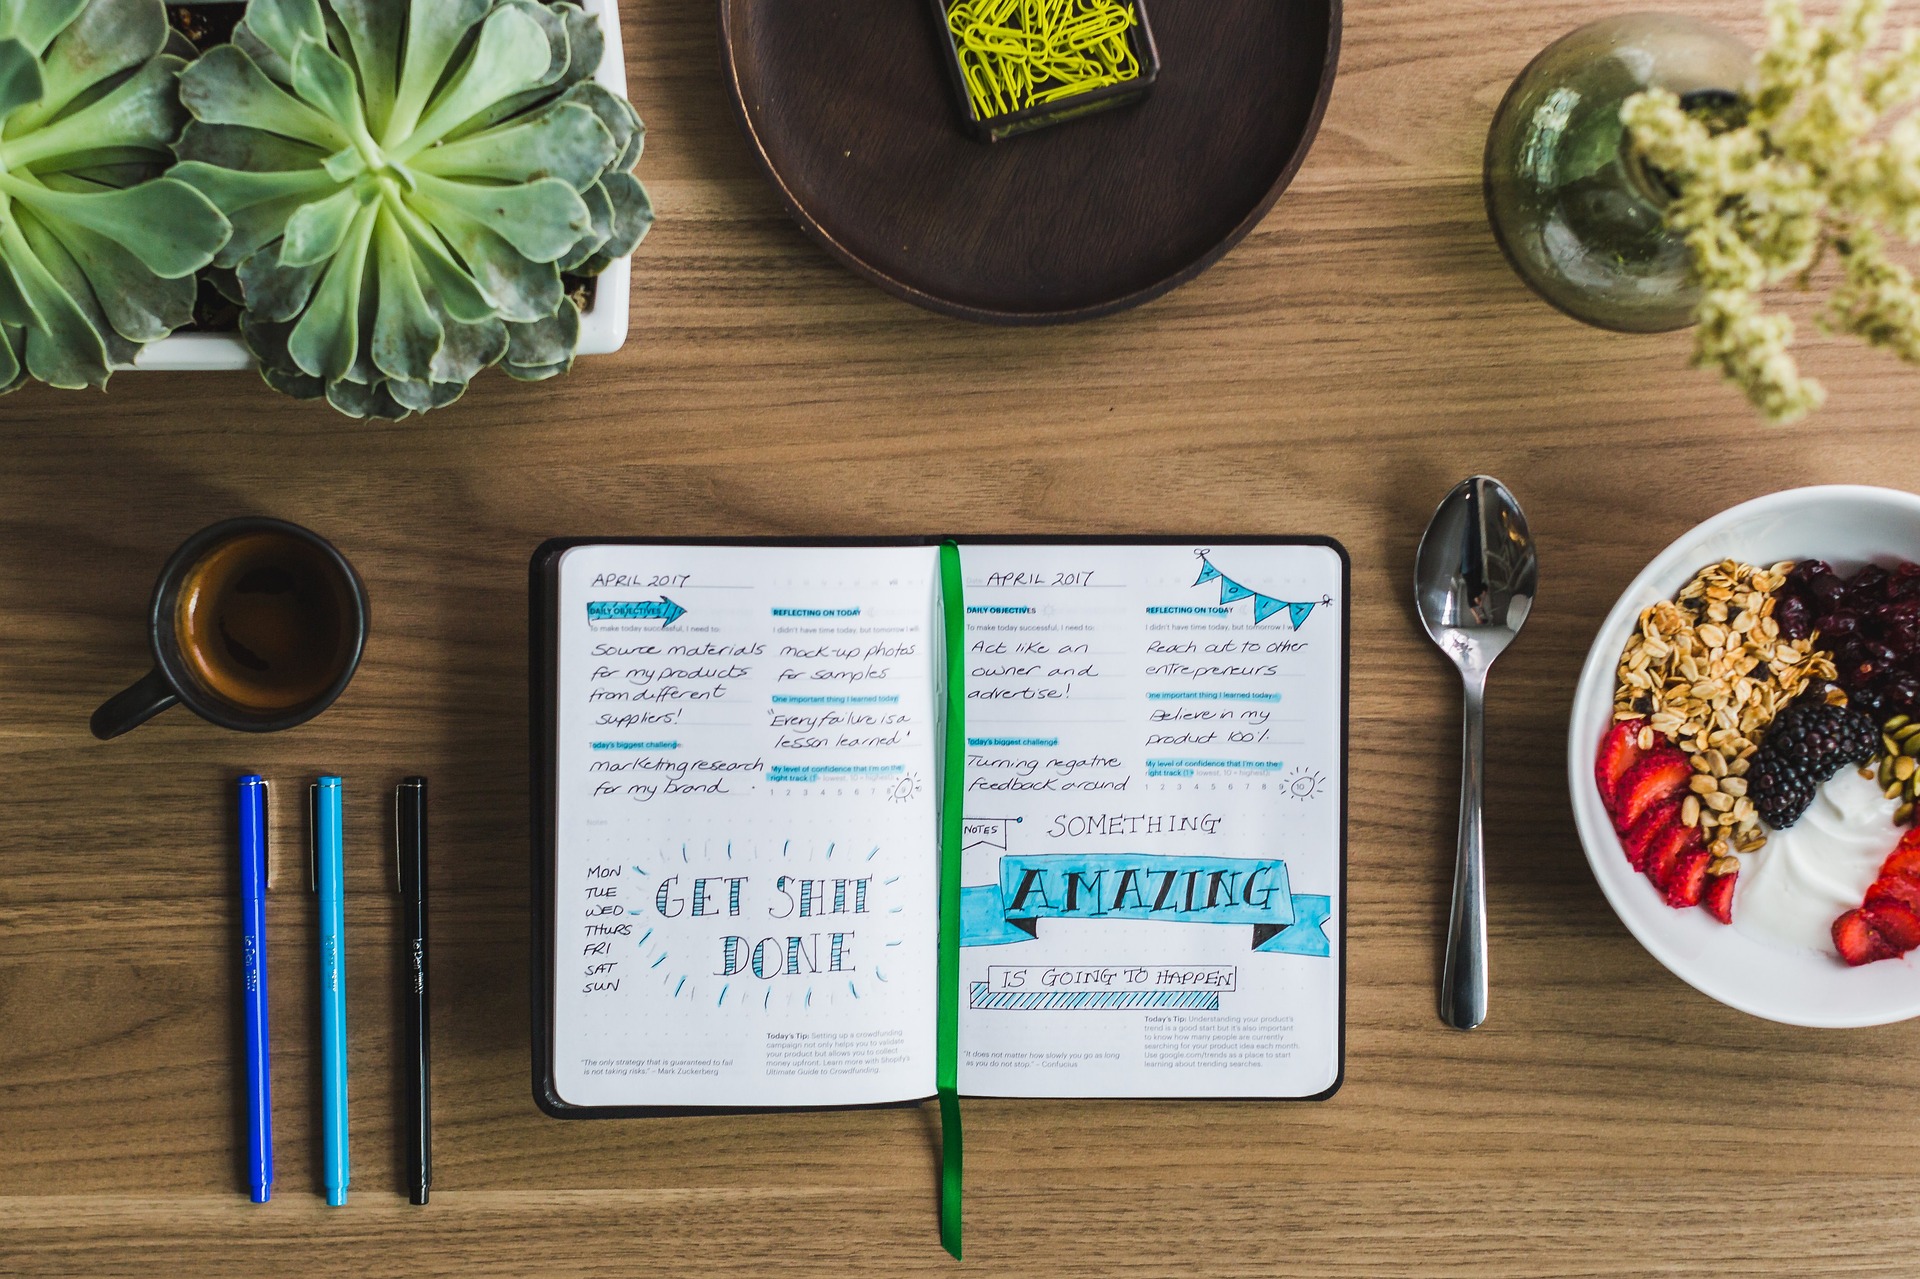 APRIL 2017
DAILY OBJECTIVES
To make today successful, I need to:
Source materials
for my products
from different
suppliers!
Today's biggest challenge
marketing research
for my brand
REFLECTING ON TODAY
I didn't have time today, but tomorrow I will
mock-up photos
for samples
One important thing I learned today
"Every failure is a
lesson learned"
My level of confidence that I'm on the
right track (1 = lowest, 10 = highest):
1 2 3 4 5 6 7 8 9
Notes
MON
TUE
WED
THURS
FRI
SAT
SUN
GET SHIT
DONE
"The only strategy that is guaranteed to fail
is not taking risks." – Mark Zuckerberg
Today's Tip: Setting up a crowdfunding
campaign not only helps you to validate
your product but allows you to collect
money upfront. Learn more with Shopify's
Ultimate Guide to Crowdfunding.
APRIL 2017
DAILY OBJECTIVES
To make today successful, I need to:
Act like an
owner and
advertise!
Today's biggest challenge
Turning negative
feedback around
REFLECTING ON TODAY
I didn't have time today, but tomorrow I will
Reach out to other
entrepreneurs
One important thing I learned today
Believe in my
product 100%.
My level of confidence that I'm on the
right track (1 = lowest, 10 = highest):
1 2 3 4 5 6 7 8 9 10
NOTES
SOMETHING
AMAZING
IS GOING TO HAPPEN
"It does not matter how slowly you go as long
as you do not stop." – Confucius
Today's Tip: Understanding your product's
trend is a good start but it's also important
to know how many people are currently
searching for your product idea each month.
Use google.com/trends as a place to start
learning about trending searches.